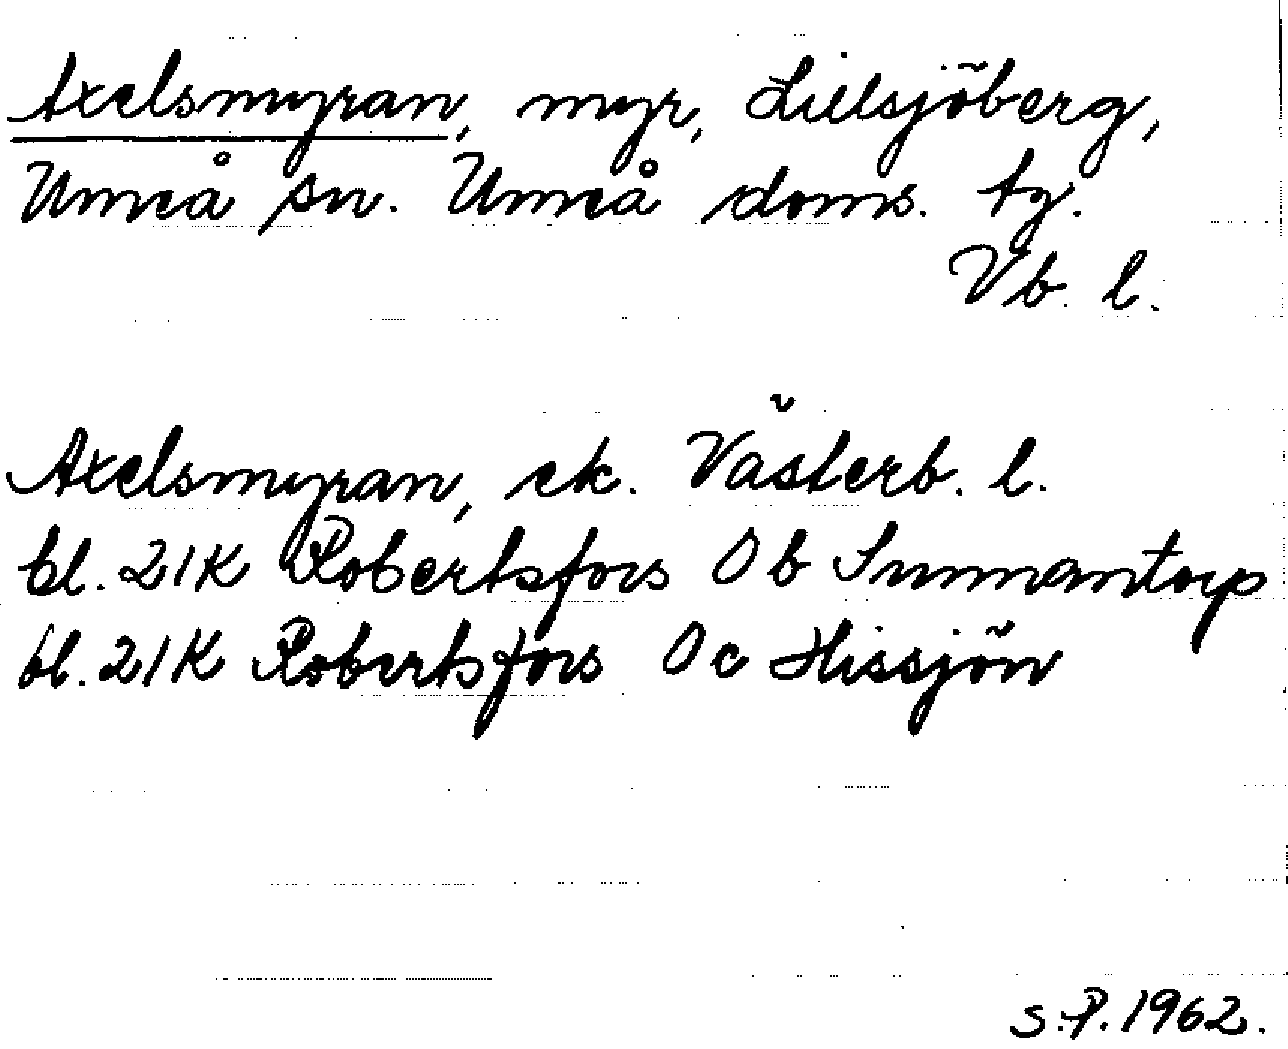 Axelsmyran, myr, Lillsjöberg,
Umeå sn. Umeå doms. tg.
Vb. l.
Axelsmyran, ek. Västerb. l.
bl. 21K Robertsfors 0 b Sunnantorp
bl. 21K Robertsfors 0 c Hissjön
S.P. 1962.